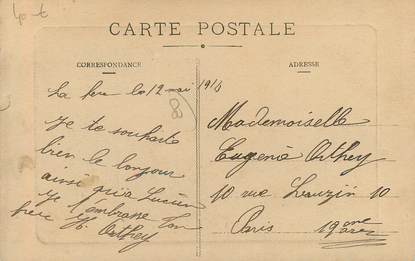 CARTE POSTALE
CORRESPONDANCE
ADRESSE
La fere le 12 mai 1916
8
Je te souhaite
bien le bonjour
ainsi qu'a Lucien
Je t'embrasse Ton
frere H. Orthey
Mademoiselle
Eugenie Orthey
10 rue Lauzin 10
Paris 19eme